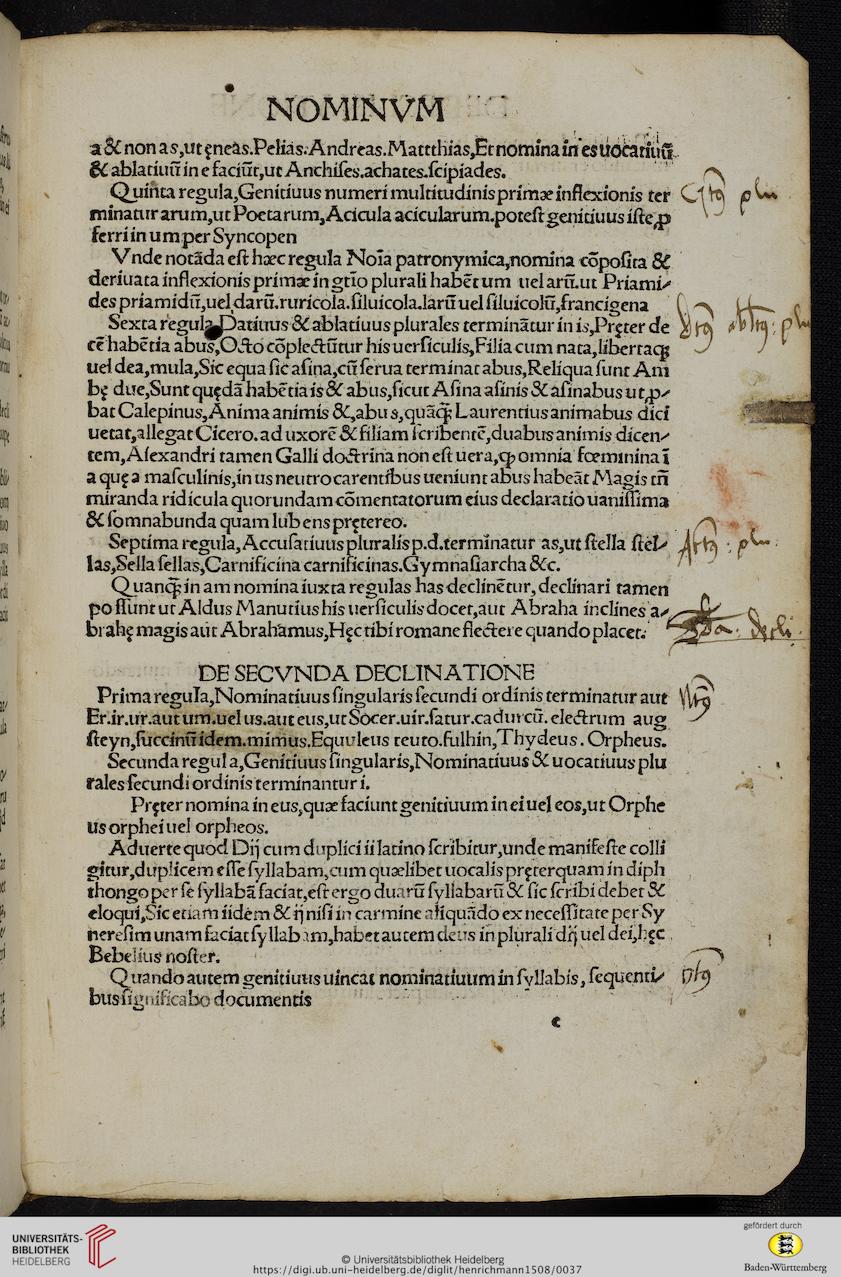 NOMINVM
a & non as,ut ęneas.Pelias.Andreas.Mattthias,Et nomina in es uocatiuũ
& ablatiuũ in e faciũt,ut Anchises.achates.scipiades.
Quinta regula,Genitiuus numeri multitudinis primæ inflexionis ter
minatur arum,ut Poetarum,Acicula acicularum.potest genitiuus iste,ꝓ
ferri in um per Syncopen
Vnde notãda est hæc regula Noĩa patronymica,nomina cõposita &
deriuata inflexionis primæ in gtĩo plurali habẽt um uel arũ.ut Priami⸗
des priamidũ,uel darũ.ruricola.siluicola.larũ uel siluicolũ,francigena
Sexta regula Datiuus & ablatiuus plurales terminãtur in is,Pręter de
cẽ habẽtia abus,Octo cõplectũtur his uersiculis,Filia cum nata,libertaqꝫ
uel dea,mula,Sic equa sic asina,cũ serua terminat abus,Reliqua sunt Am
bę due,Sunt quędã habẽtia is & abus,sicut Asina asinis & asinabus ut,ꝓ⸗
bat Calepinus,Anima animis &,abus,quãqꝫ Laurentius animabus dici
uetat,allegat Cicero.ad uxorẽ & filiam scribentẽ,duabus animis dicen⸗
tem,Alexandri tamen Galli doctrina non est uera,ꝙ omnia fœminina ĩ
a quę a masculinis,in us neutro carentibus ueniunt abus habeãt Magis tñ
miranda ridicula quorundam cõmentatorum eius declaratio uanissima
& somnabunda quam lubens pręteréo.
Septima regula,Accusatiuus pluralis p.d.terminatur as,ut stella stel⸗
las,Sella sellas,Carnificina carnificinas.Gymnasiarcha &c.
Quanqꝫ in am nomina iuxta regulas has declinẽtur, declinari tamen
possunt ut Aldus Manutius his uersiculis docet,aut Abraha inclines a⸗
brahę magis aut Abrahamus,Hęc tibi romane flectere quando placet.
DE SECVNDA DECLINATIONE
Prima regula,Nominatiuus singularis secundi ordinis terminatur aut
Er.ir.ur.aut um.uel us.aut eus,ut Socer.uir.satur.cadurcũ. electrum aug
steyn,succinũ idem.mimus.Equuleus teuto.fulhin,Thydeus. Orpheus.
Secunda regula,Genitiuus singularis,Nominatiuus & uocatiuus plu
rales secundi ordinis terminantur i.
Pręter nomina in eus,quæ faciunt genitiuum in ei uel eos,ut Orphe
us orphei uel orpheos.
Aduerte quod Dij cum duplici ii latino scribitur,unde manifeste colli
gitur,duplicem esse syllabam,cum quælibet uocalis pręterquam in diph
thongo per se syllabã faciat,est ergo duarũ syllabarũ & sic scribi debet &
eloqui,Sic etiam iidem & ij nisi in carmine aliquãdo ex necessitate per Sy
neresim unam faciat syllabam,habet autem deus in plurali dij uel dei,hęc
Bebelius noster.
Quando autem genitiuus uincat nominatiuum in syllabis, sequenti⸗
bus significabo documentis
c
UNIVERSITÄTS-
BIBLIOTHEK
HEIDELBERG
© Universitätsbibliothek Heidelberg
https://digi.ub.uni-heidelberg.de/diglit/henrichmann1508/0037
gefördert durch
Baden-Württemberg